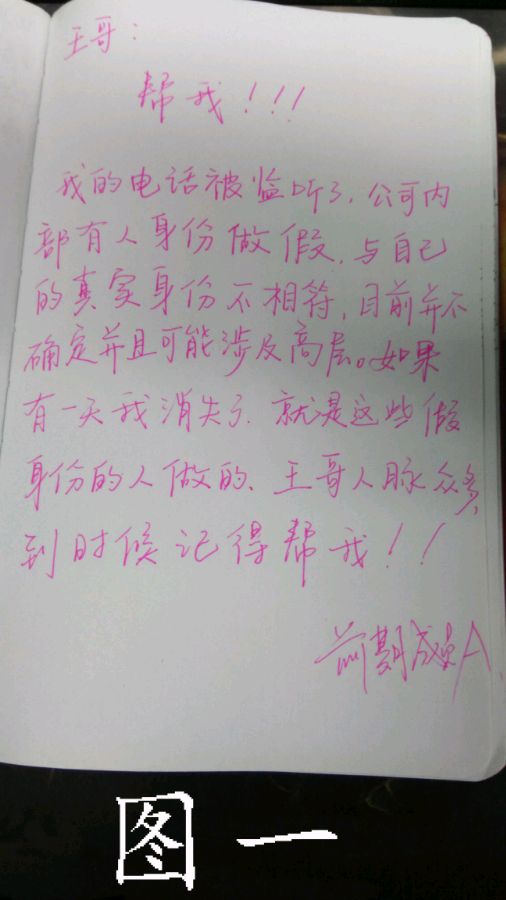 王哥：
帮我！！！
我的电话被监听了，公司内
部有人身份做假，与自己
的真实身份不相符，目前并不
确定并且可能涉及高层。如果
有一天我消失了，就是这些做
身份的人做的、王哥人脉众多，
到时候记得帮我！！
前期成员A
图一